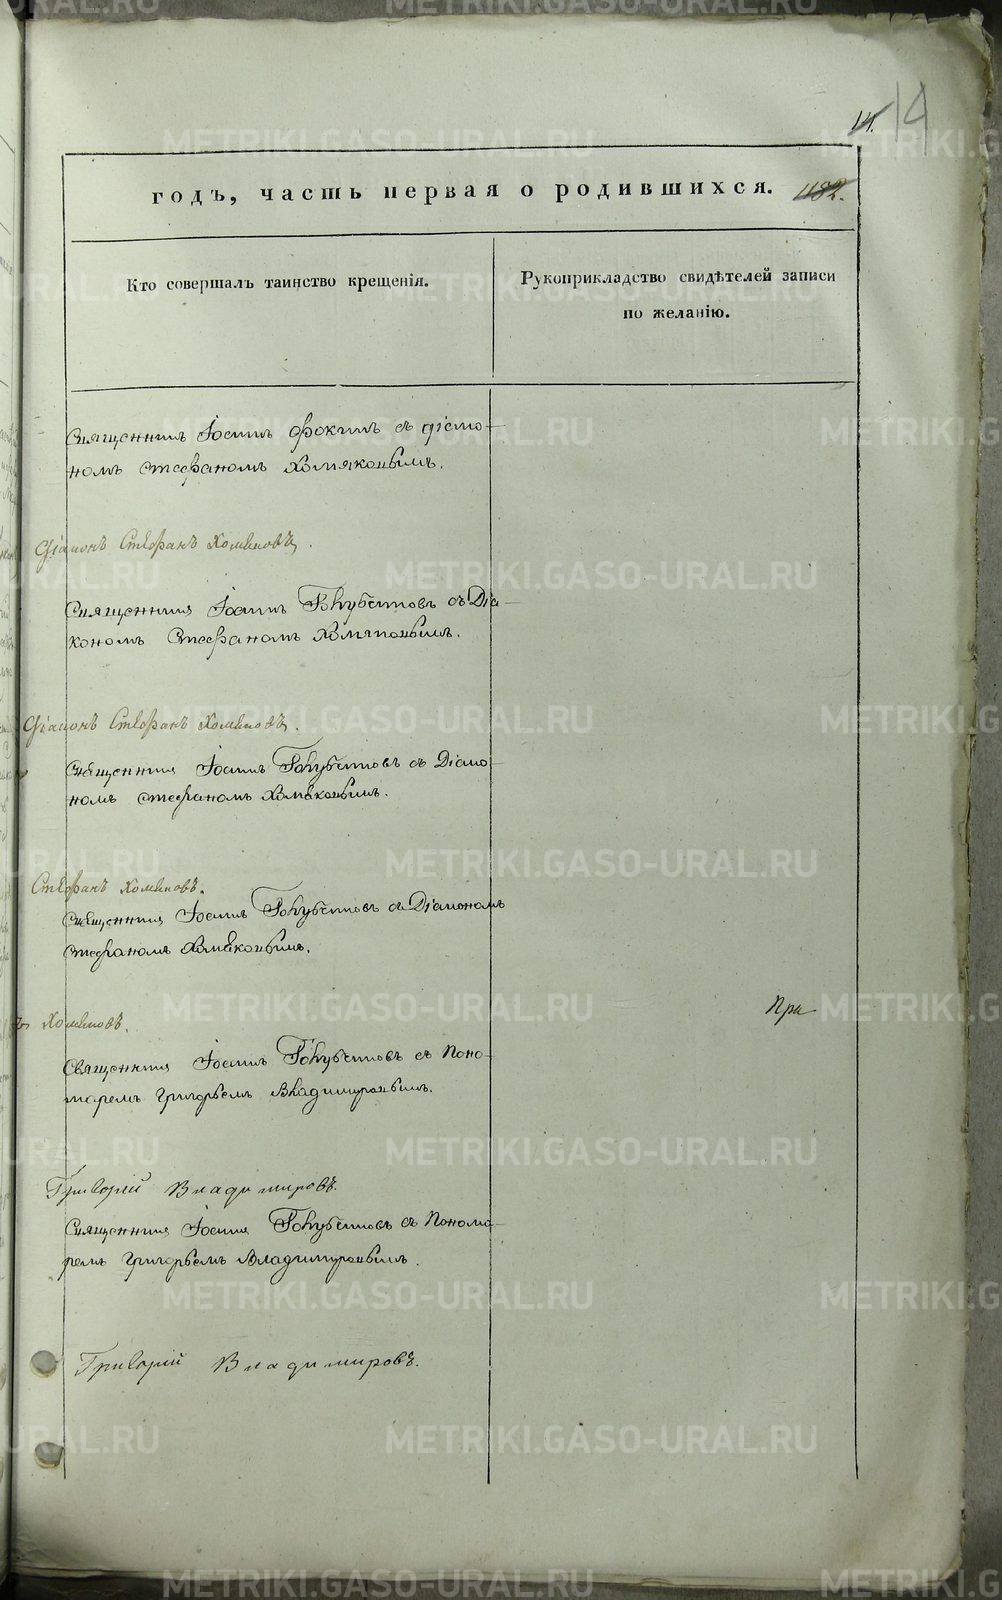 14. 14
годъ, часть первая о родившихся. 1182.
Кто совершалъ таинство крещенія.
Рукоприкладство свидѣтелей записи
по желанію.
Священникъ Іоаннъ Фокинъ съ діако-
номъ Стефаномъ Хомяковымъ.
Діаконъ Стефанъ Хомяковъ.
Священникъ Іоаннъ Голубчиковъ съ Діа-
кономъ Стефаномъ Хомяковымъ.
Діаконъ Стефанъ Хомяковъ.
Священникъ Іоаннъ Голубчиковъ съ Діако-
номъ Стефаномъ Хомяковымъ.
Стефанъ Хомяковъ.
Священникъ Іоаннъ Голубчиковъ съ Діакономъ
Стефаномъ Хомяковымъ.
ъ Хомяковъ.
При
Священникъ Іоаннъ Голубчиковъ съ Поно-
маремъ Григорьемъ Владимировымъ.
Григорій Владимировъ.
Священникъ Іоаннъ Голубчиковъ съ Понома-
ремъ Григорьемъ Владимировымъ.
Григорій Владимировъ.
METRIKI.GASO-URAL.RU